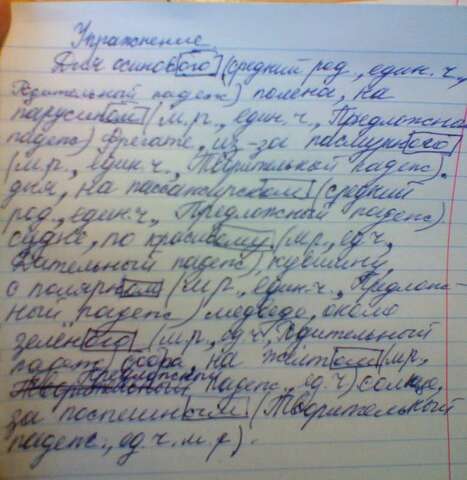 Упражнение
Для осинового (средний род, един.ч.,
Родительный падеж) полена, на
парусном (м.р., един.ч., Предложный
падеж) фрегате, из-за пасмурного
(м.р., един.ч., Творительный падеж)
дня, на пассажирском (средний
род., един.ч, Предложный падеж)
судне, по красивому (м.р., ед.ч,
Дательный падеж), кувшину,
о полярном (м.р., един.ч., Предлож-
ный падеж) медведе, около
зелёного (м.р., ед.ч, Родительный
падеж) на желтом (м.р,
падеж, ед.ч) солнце,
за (Творительный
падеж., ед.ч.м.р).